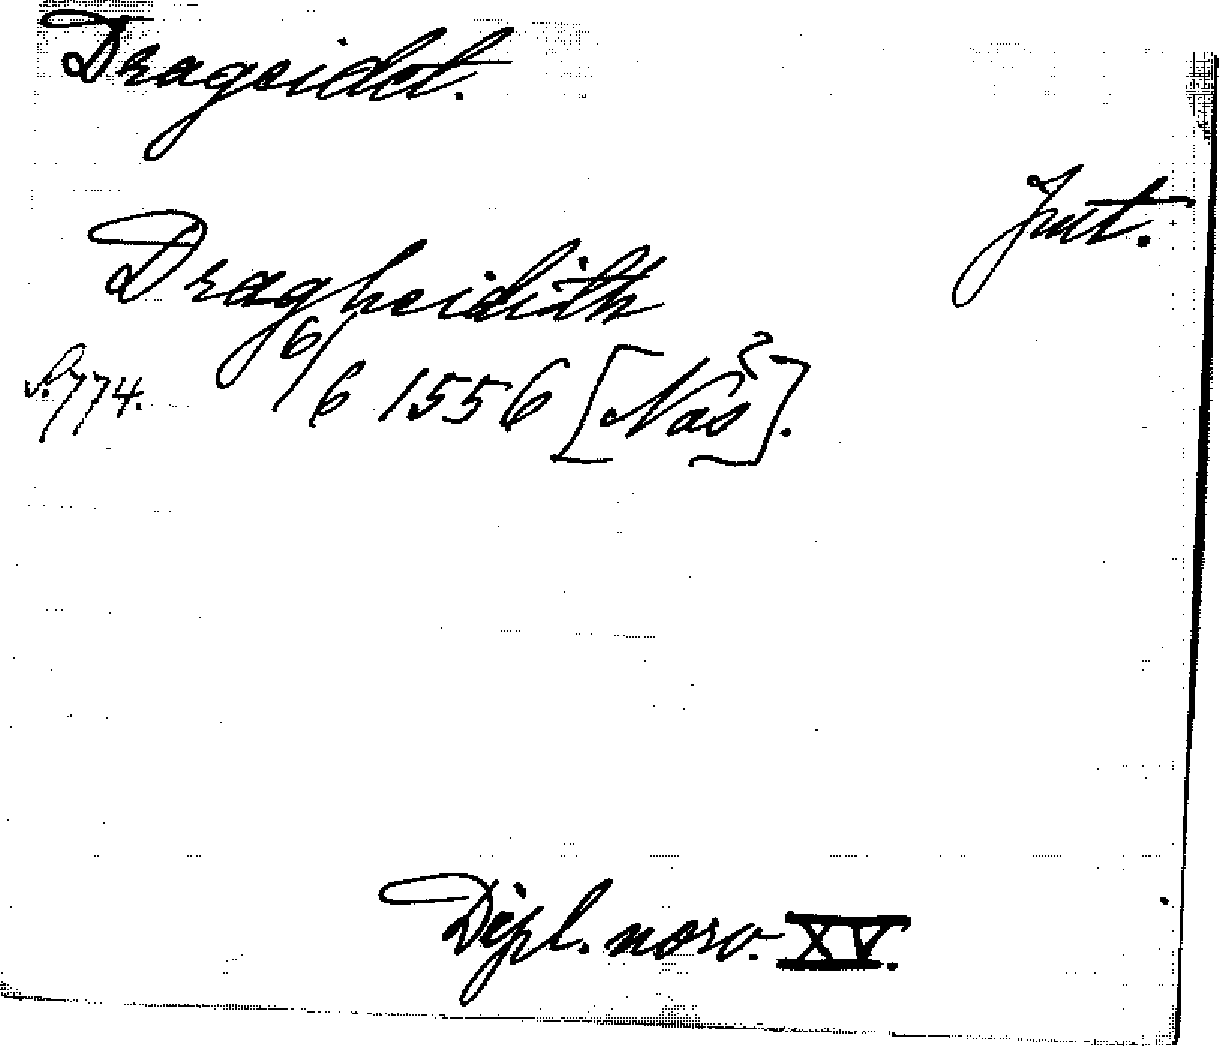 Drageidet.
Jmt.
Dragheidith
S. 774. 6/6 1556 [Näs].
Dipl. norv. XV.